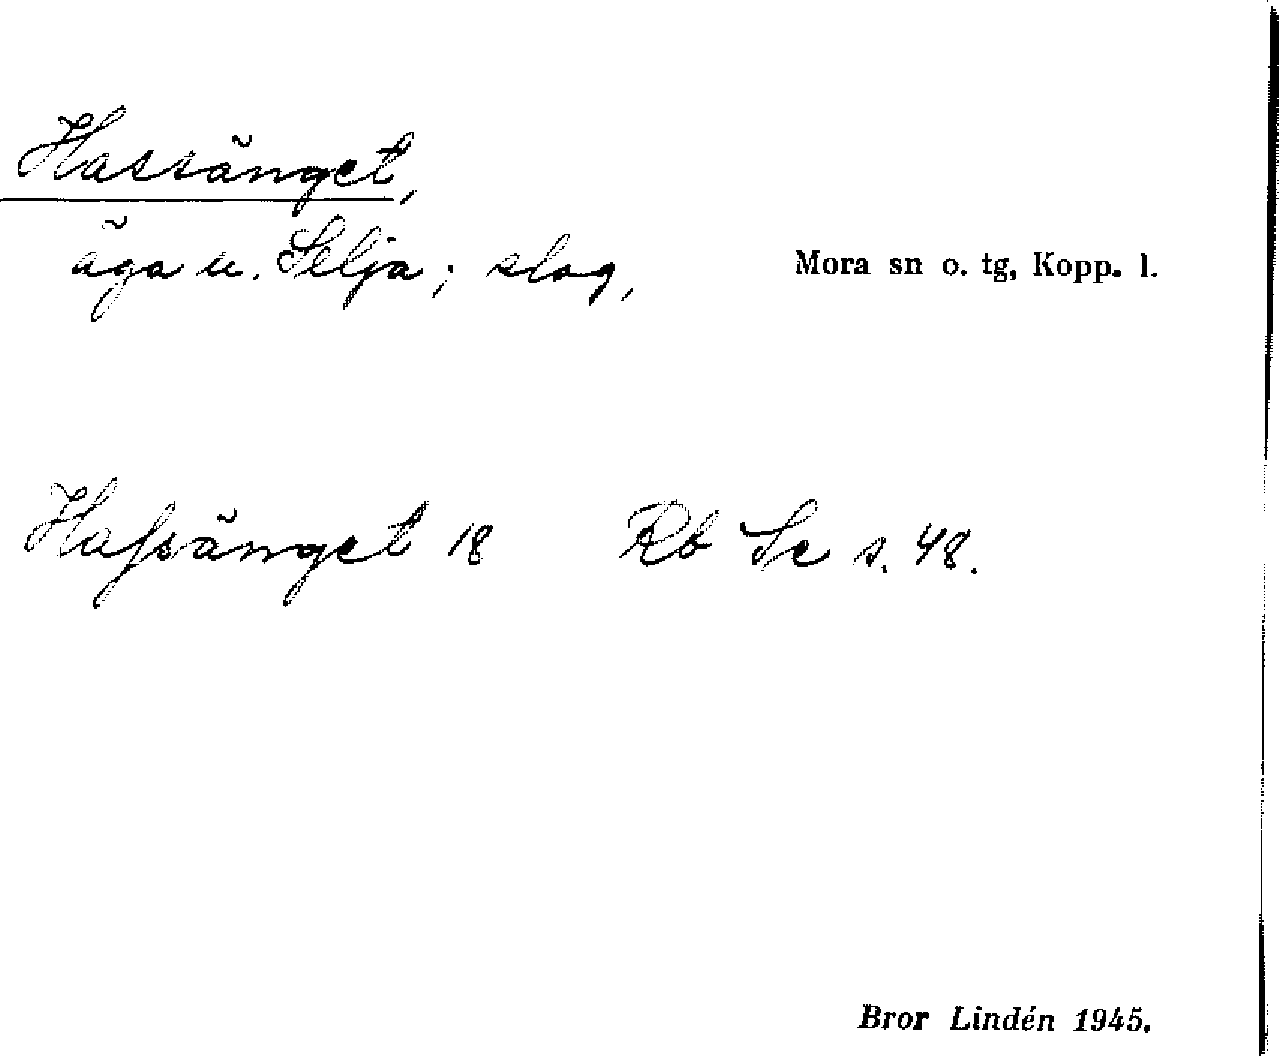 Hassänget,
äga u. Selja; slog,
Mora sn o. tg, Kopp. l.
Haſsänget 18 Rb Se s. 48.
Bror Lindén 1945.